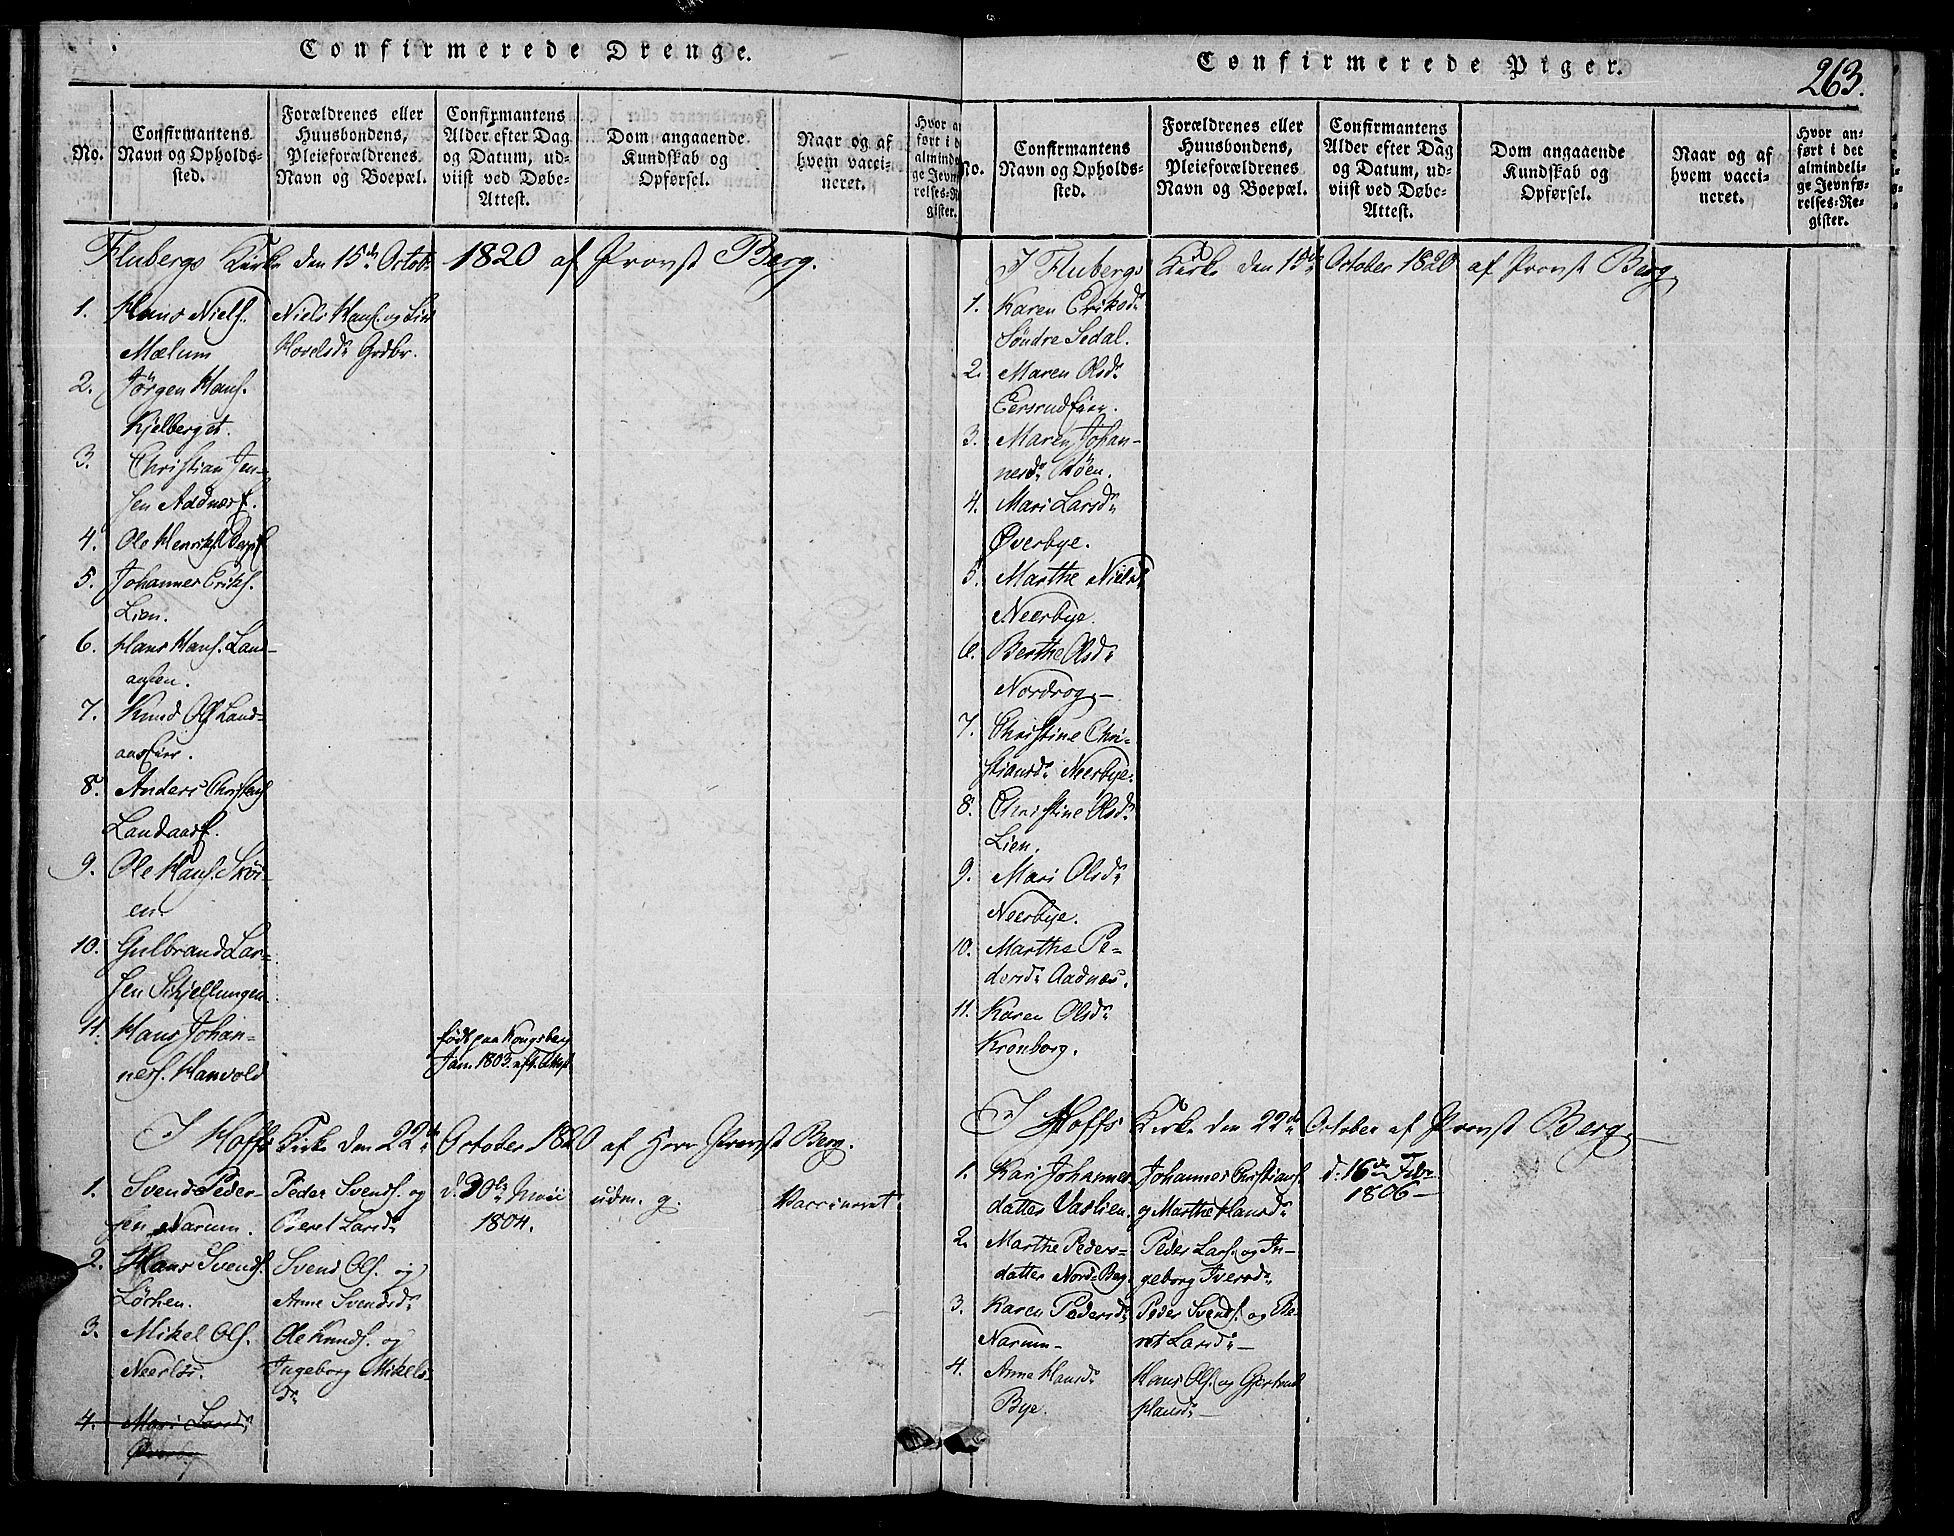 Confirmerede Drenge.
No.
Confirmantens
Navn og Opholds-
sted.
Forældrenes eller
Huusbondens,
Pleieforældrenes
Navn og Boepæl.
Confirmantens
Alder efter Dag
og Datum, ud-
viist ved Døbe-
Attest.
Dom angaaende
Kundskab og
Opførsel.
Naar og af
hvem vacci-
neret.
Hvor an
ført i d
alminde
ge Jevn
relses-R
gister.
Flubergs Kirke den 15de Octob. 1820 af Provst Berg.
1. Hans Niels. Niels Hans. og
Mælum Grdbr.
2. Jörgen Hans.
Kjelberget.
3. Christian Jen-
sen Aadnæs
4. Ole Henriks.
5. Johannes Eriks.
Lien.
6. Hans Hans. Land-
aasen.
7. Knud Ols. Land-
aas
8. Anders
Landaas
9. Ole Hans. Skör-
en
10. Gulbrand Lar-
sen Skjellungen
11. Hans Johan-
nes. Hanvold
födt paa Kongsberg
Jan. 1803. Attest
I Hoffs Kirke den 22de October 1820 af Herr Provst Berg.
1. Svend Peder- Peder Svends. og d. 30te Maii udm. g. Vaccineret
sen Narum. Beret Larsdr 1804.
2. Hans Svends. Svend Ols. og
Löchen. Anne Svendsdr
3. Mikel Ols. Ole Knuds. og
Neerlös. Ingeborg Mikels-
dr
4. Mari Larsdr
Confirmerede Piger.
263.
No.
Confirmantens
Navn og Opholds-
sted.
Forældrenes eller
Huusbondens,
Pleieforældrenes
Navn og Boepæl.
Confirmantens
Alder efter Dag
og Datum, ud-
viist ved Døbe-
Attest.
Dom angaaende
Kundskab og
Opførsel.
Naar og af
hvem vacci-
neret.
Hvor an-
ført i det
almindeli-
ge Jevnfø-
relses-Re-
gister.
I Flubergs Kirke den 15de October 1820 af Provst Berg
1. Karen Eriksdr
Søndre Sedal.
2. Maren Olsdr
Eersrud
3. Maren Johan-
nesdr
4. Mari Larsdr
Øverbye.
5. Marthe Nielsdr
Neerbye.
6. Berthe Olsdr
Nordrog.
7. Christine Chri-
stiansdr Neerbye.
8. Christine Olsdr
Lien.
9. Mari Olsdr
Neerbye.
10. Marthe Pe-
dersdr Aadnæs.
11. Karen Olsdr
Kronborg.
I Hoffs Kirke den 22de October af Provst Berg
1. Kari Johannes- Johannes Christians. d. 16de Febr
datter Vaslien. og Marthe Hansdr 1806
2. Marthe Peders- Peder Lars. og In-
datter Nord-Berg. geborg Iversdr
3. Karen Pedersdr Peder Svends. og Be-
Narum ret Larsdr
4. Anne Hansdr Hans Ols. og Gjertrud
Bye. Hansdr